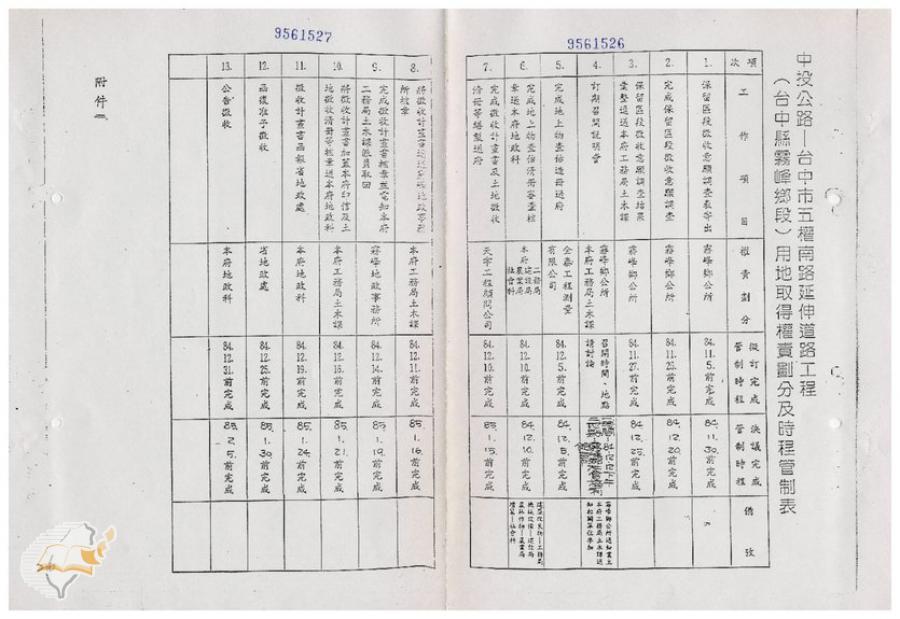 中投公路—台中市五權南路延伸道路工程
（台中縣霧峰鄉段）用地取得權責劃分及時程管制表
9561526
項次
工作項目
權責劃分
擬訂完成管制時程
決議完成管制時程
備攷
1.
保留區段徵收意願調查表寄出
霧峰鄉公所
84.11.5.前完成
84.11.30.前完成
2.
完成保留區段徵收意願調查
霧峰鄉公所
84.11.25.前完成
84.12.20.前完成
3.
保留區段徵收意願調查結果
彙整過送本府工務局土木課
霧峰鄉公所
84.11.27.前完成
84.12.25.前完成
4.
訂期召開說明會
霧峰鄉公所
本府工務局土木課
召開時間、地點
請討論
霧峰鄉公所通知業主
本府工務局土木課通
知相關單位參加
5.
完成地上物查估造冊送府
全嘉工程測量
有限公司
84.12.5.前完成
84.12.8.前完成
6.
完成地上物查估清冊審查核
章送本府地政科
本府
工務局
建設局
農業局
社會科
84.12.10.前完成
84.12.10.前完成
7.
完成徵收計畫書及土地徵收
清冊等繕製送府
天宇工程顧問公司
84.12.10.前完成
85.1.15.前完成
9561527
8.
所核章
本府工務局土木課
84.12.11.前完成
85.1.16.前完成
9.
完成徵收計畫書核章並電知本府
工務局土木課派員取回
霧峰地政事務所
84.12.14.前完成
85.1.19.前完成
10.
將徵收計畫書加蓋本府印信及土
地徵收清冊等核章送本府地政科
本府工務局土木課
84.12.16.前完成
85.1.21.前完成
11.
徵收計畫書函報省地政處
本府地政科
84.12.19.前完成
85.1.24.前完成
12.
函復准予徵收
省地政處
84.12.25.前完成
85.1.30.前完成
13.
公告徵收
本府地政科
84.12.31.前完成
85.2.5.前完成
附件二